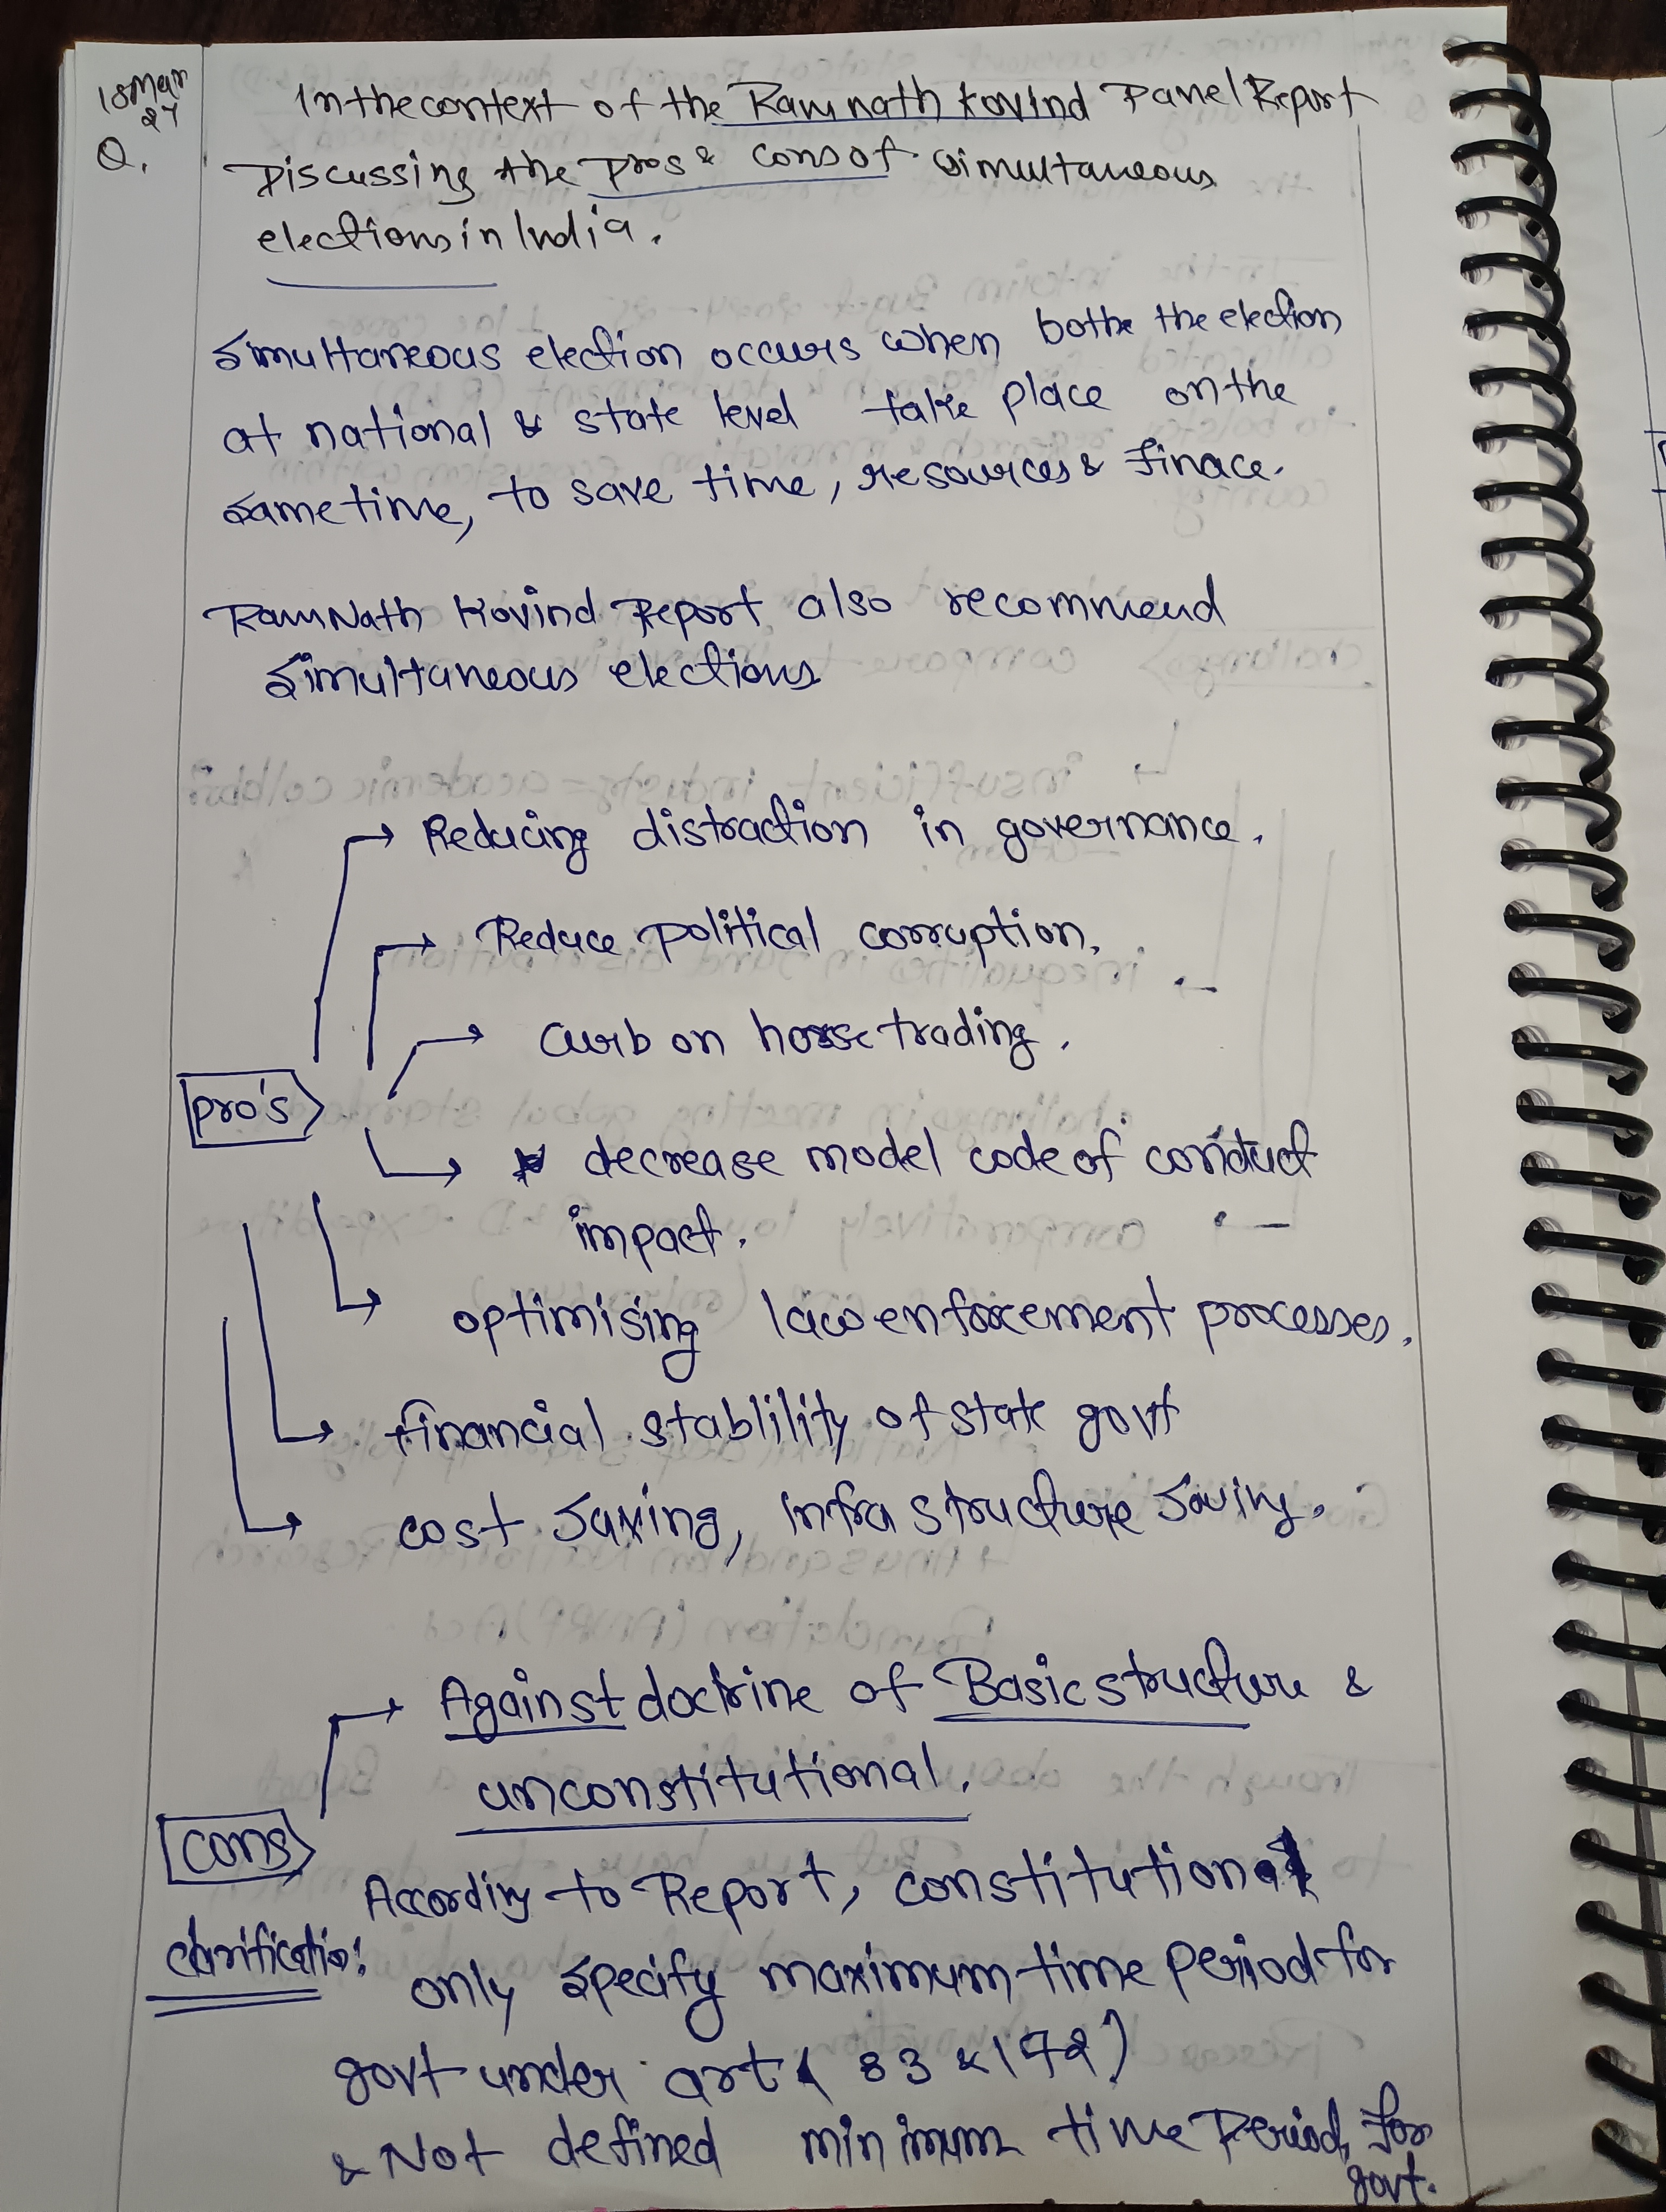 18 Mar
27
Q. In the context of the Ramnath Kovind Panel Report
Discussing the pros & cons of simultaneous
elections in India.
Simultaneous election occurs when bothe the election
at national & state level take place on the
same time, to save time, resources & finace.
RamNath Kovind Report also recommend
simultaneous elections
→ Reducing distraction in governance.
→ Reduce political corruption.
→ curb on horse trading.
pro's
→ decrease model code of conduct
impact.
→ optimising law enforcement processes.
→ financial stablility of state govt
→ cost saving, infrastructure saving.
→ Against doctrine of Basic structure &
unconstitutional.
cons
According to Report, constitution
clarification:
only specify maximum time period for
govt under art ( 83 & 172)
& Not defined minimum time Period for
govt.